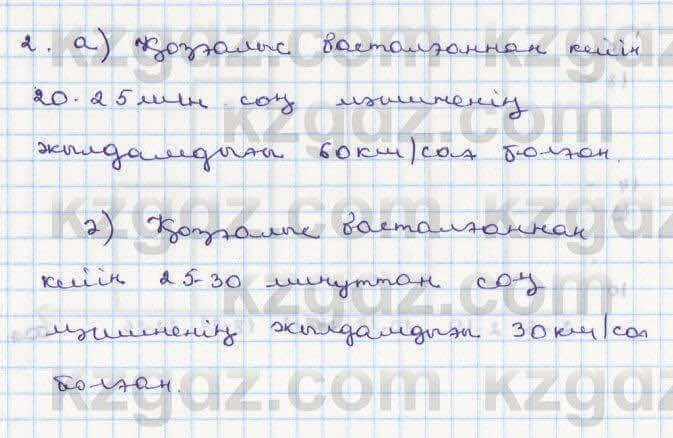 2. а) Қозғалыс басталғаннан кейін
20-25 мин соң машиненің
жылдамдығы 60км/сағ болған.
ә) Қозғалыс басталғаннан
кейін 25-30 минуттан соң
машиненің жылдамдығы 30км/сағ
болған.
kzgdz.com